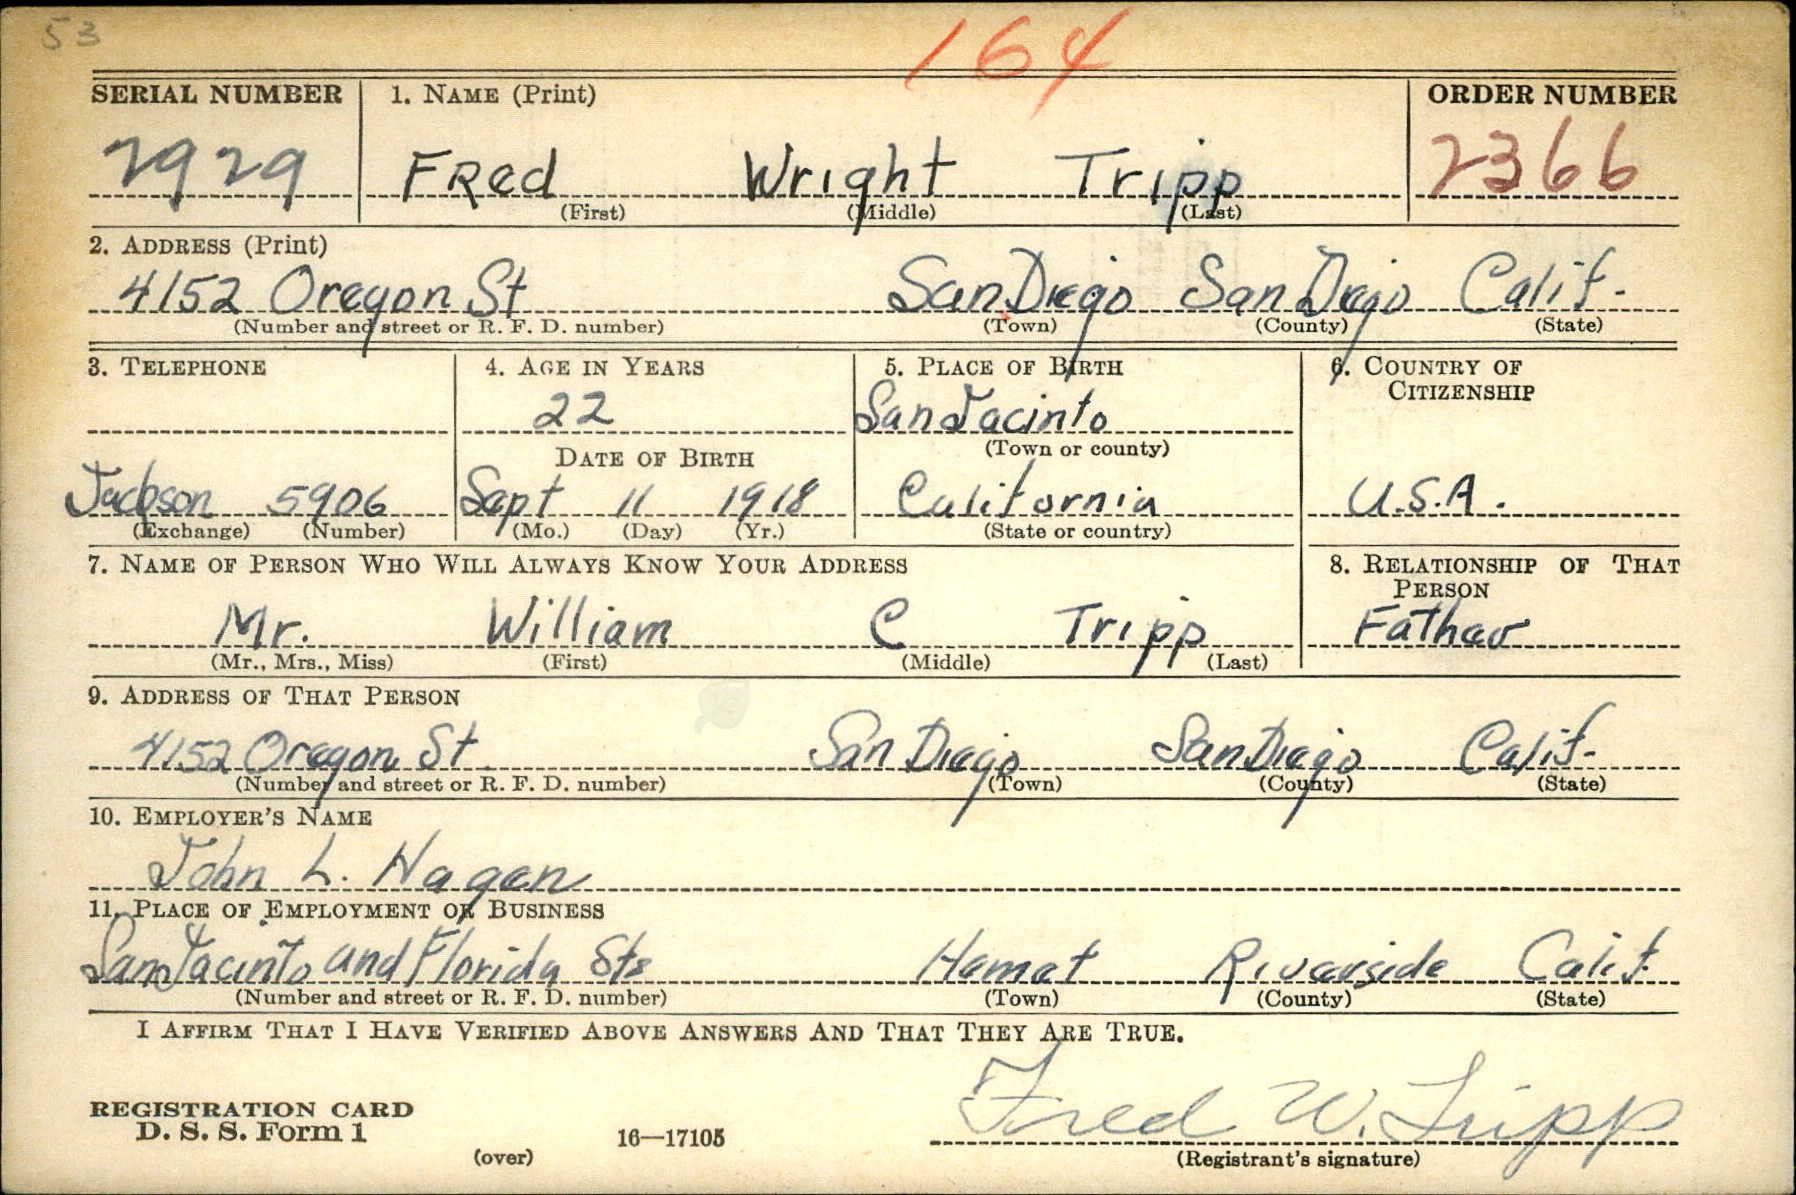 53
164
SERIAL NUMBER 1. NAME (Print) ORDER NUMBER
2929 FRed Wright Tripp 2366
(First) (Middle) (Last)
2. ADDRESS (Print)
4152 Oregon St San Diego San Diego Calif.
(Number and street or R. F. D. number) (Town) (County) (State)
3. TELEPHONE 4. AGE IN YEARS 5. PLACE OF BIRTH 6. COUNTRY OF
CITIZENSHIP
22 San Jacinto
DATE OF BIRTH (Town or county)
Jackson 5906 Sept 11 1918 California U.S.A.
(Exchange) (Number) (Mo.) (Day) (Yr.) (State or country)
7. NAME OF PERSON WHO WILL ALWAYS KNOW YOUR ADDRESS 8. RELATIONSHIP OF THAT
PERSON
Mr. William C Tripp Father
(Mr., Mrs., Miss) (First) (Middle) (Last)
9. ADDRESS OF THAT PERSON
4152 Oregon St. San Diego San Diego Calif.
(Number and street or R. F. D. number) (Town) (County) (State)
10. EMPLOYER'S NAME
John L. Hagen
11. PLACE OF EMPLOYMENT OR BUSINESS
San Jacinto and Florida Sts Hemet Riverside Calif.
(Number and street or R. F. D. number) (Town) (County) (State)
I AFFIRM THAT I HAVE VERIFIED ABOVE ANSWERS AND THAT THEY ARE TRUE.
REGISTRATION CARD Fred W. Tripp
D. S. S. Form 1 16—17105
(over) (Registrant's signature)